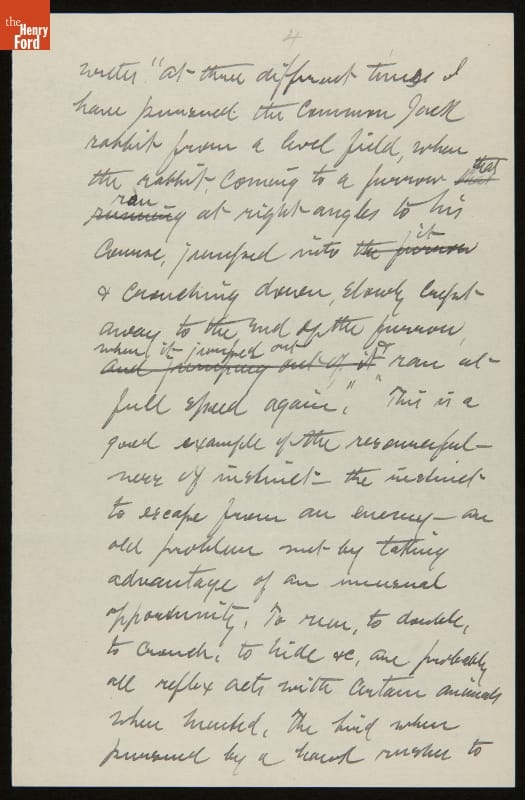 the
Henry
Ford
4
writer. "At three different times I
have pursued the common Jack
rabbit from a level field, when
the rabbit, coming to a furrow that that
ran running at right angles to his
course, jumped into the furrow it
& crouching down, slowly crept
away to the end of the furrow,
when it jumped out &
and jumping out of it ran at
full speed again." This is a
good example of the resourceful-
ness of instinct – the instinct
to escape from an enemy – an
old problem met by taking
advantage of an unusual
opportunity. To run, to double,
to crouch, to hide &c, are probably
all reflex acts with certain animals
when hunted. The bird when
pursued by a hawk rushes to